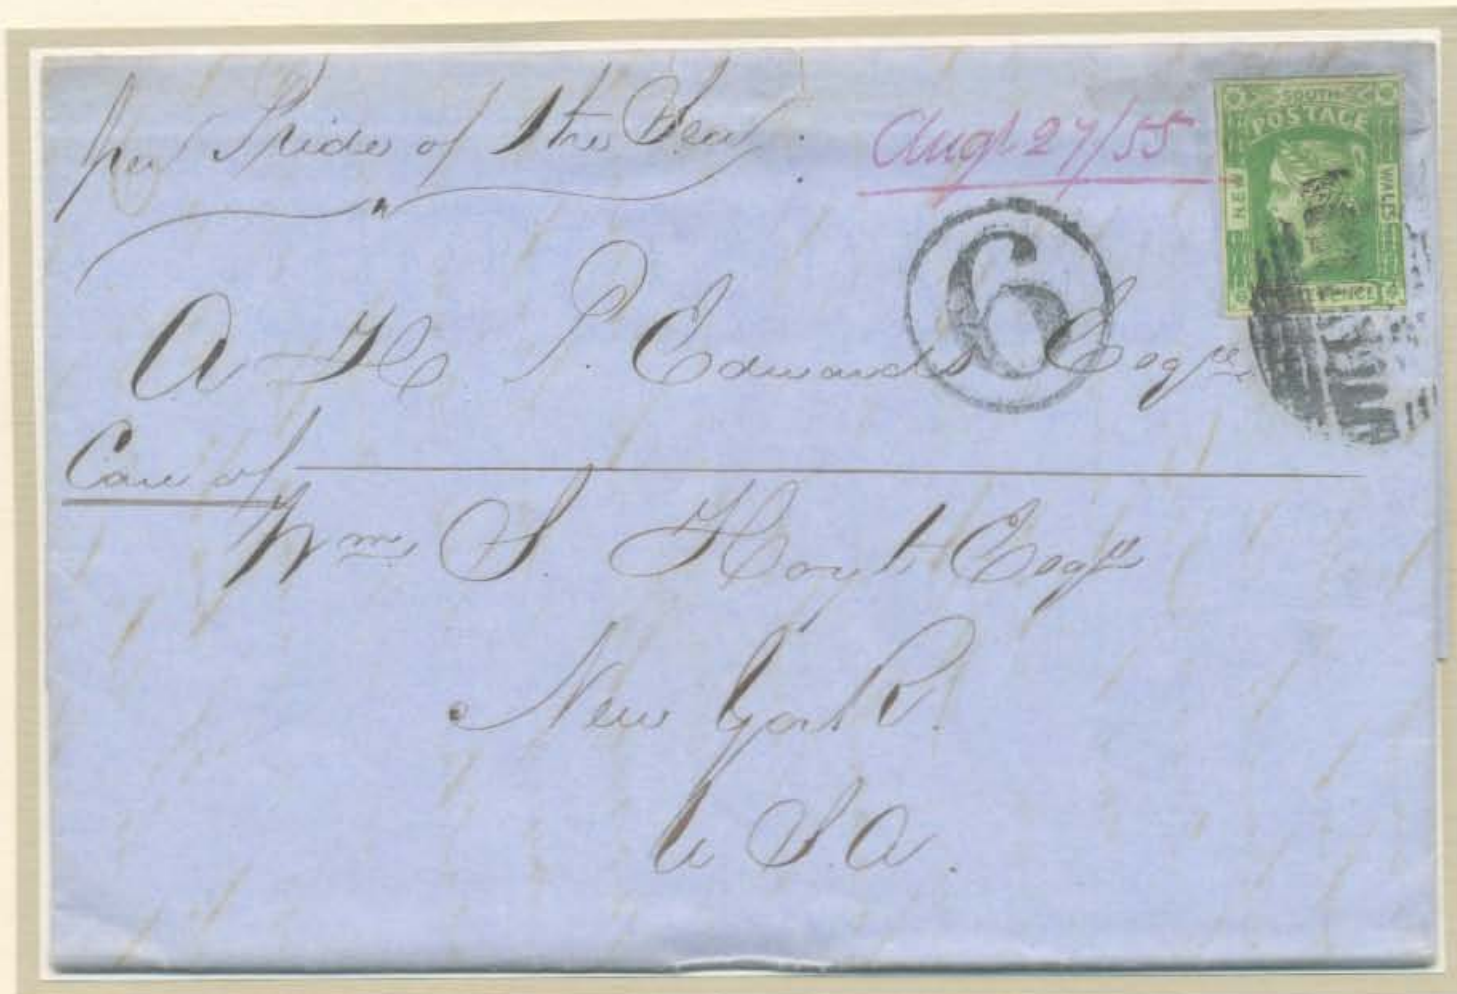 per Pride of the Sea.
Augt 27/55
SOUTH
POSTAGE
NEW
WALES
PENCE
6
A H P. Edwards Esqre
Care of
Wm S. Hoyt Esqre
New York.
U S. A.